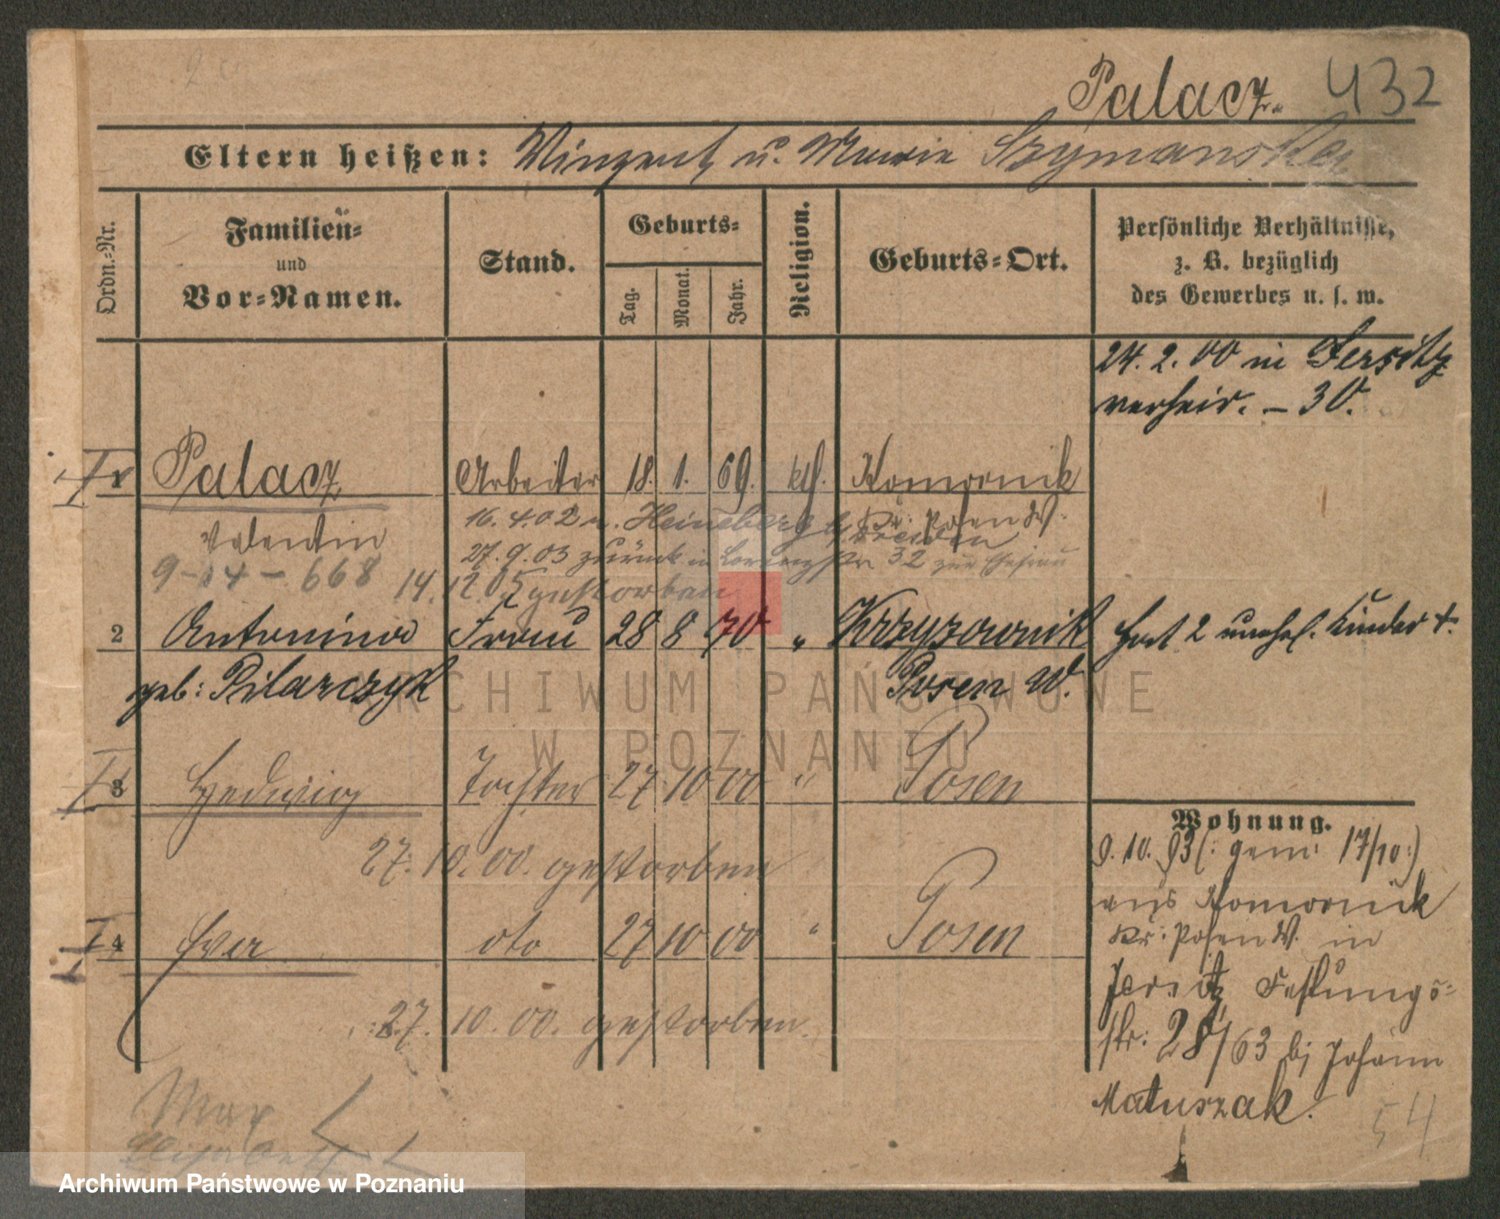 Palacz. 432
Eltern heißen: Vinzent u. Marie Szymanska
Ordn.-Nr.
Familien-
und
Vor-Namen.
Stand.
Geburts-
Tag.
Monat.
Jahr.
Religion.
Geburts-Ort.
Persönliche Verhältnisse,
z. B. bezüglich
des Gewerbes u. s. w.
24. 2. 00 in Jersitz
verheir. – 30.
1 Palacz Arbeiter 18. 1. 69. kth. Komornik
Valentin
Kr. Posen W.
16. 4. 02 n. Heinsberg b. Dresden
27. 9. 03 zurück in 32 zur Ehefrau
9-14-668
14. 12. 05 gestorben
2 Antonina Frau 28 8 70 " Krzyzownik
geb: Pilarczyk Posen W.
Hat 2 unehel. Kinder †.
3 Hedwig Tochter 27 10 00 " Posen
27. 10. 00. gestorben
4 Eva dto 27 10 00 " Posen
27. 10. 00. gestorben
Wohnung.
9. 10. 93 (: gem. 17/10:)
aus Komornik
Kr: Posen W. in
Jersitz Festungs-
str: 28/63 bj Johann
Matuszak.
54
Max
Elisabeth
ARCHIWUM PAŃSTWOWE
W POZNANIU
Archiwum Państwowe w Poznaniu